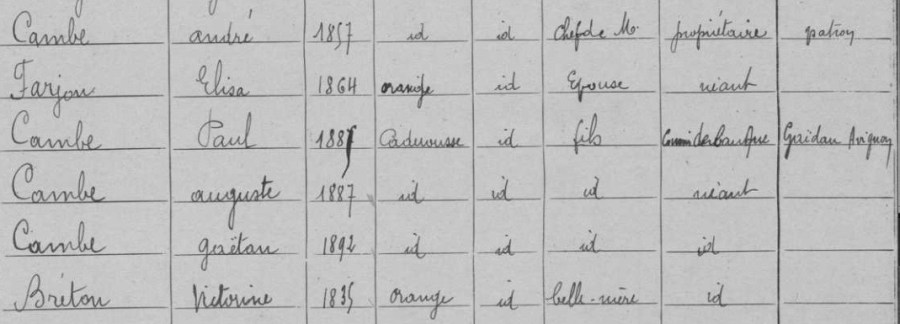 Cambe andré 1857 id id Chef de M. propriétaire patron
Farjon Elisa 1864 orange id Epouse néant
Cambe Paul 1885 Caderousse id fils Commi de Banque Gaidan Avignon
Cambe auguste 1887 id id id néant
Cambe gaëtan 1892 id id id id
Bréton Victorine 1835 orange id belle-mère id